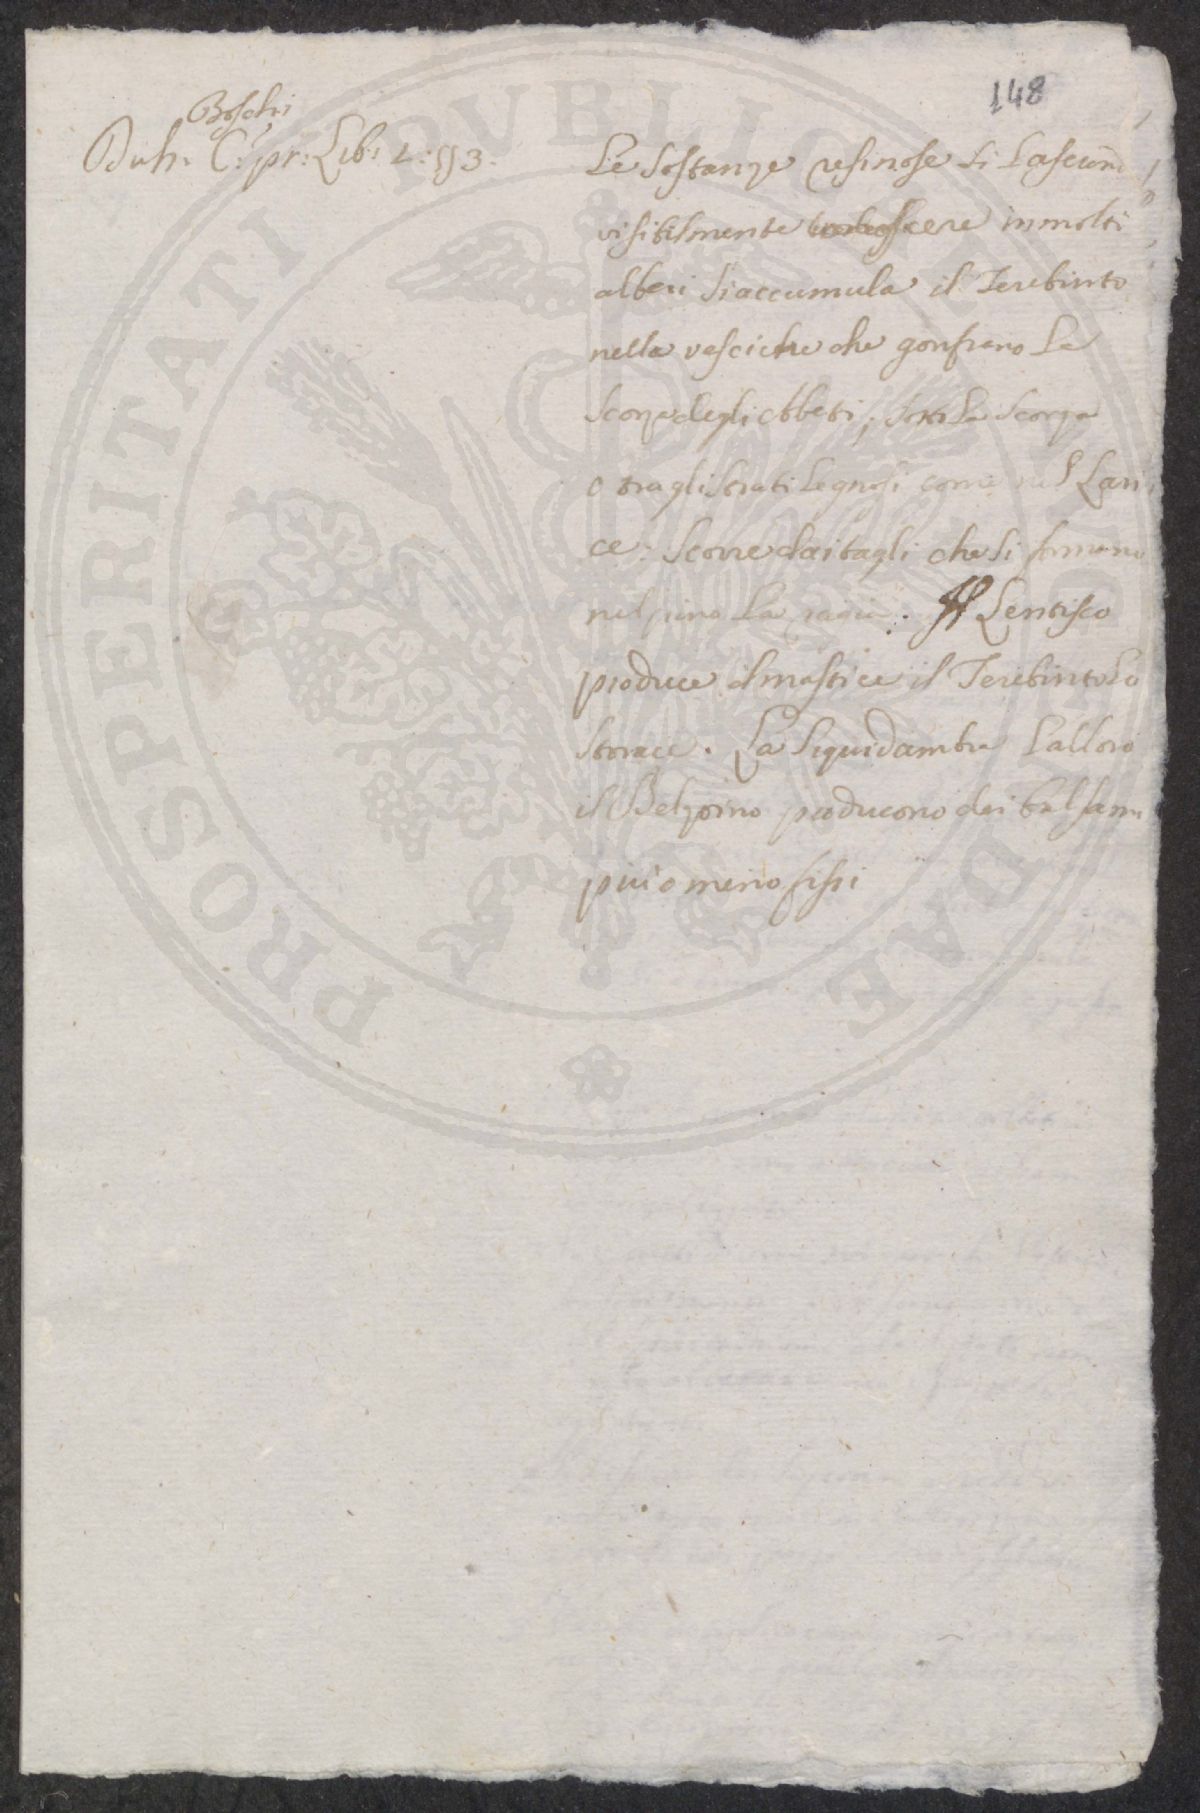 148
Boschi
Duh. C: pr: Lib: 2: 553.
Le Sostanze resinose si Lasciano
visibilmente conoscere in molti
alberi si accumula il Terebinto
nelle vesciche che gonfiano La
Scorza degli Abeti, sotto La Scorza
o tra gli strati Legnosi come nel Lari
ce: Scorre dai tagli che si formano
nel pino La ragia. Il Lentisco
produce il mastice il Terebinto Lo
storace. La Liquidambra Lalloro
il Belzoino producono dei balsami
piu o meno fissi
PROSPERITATI PVBLICAE AVGENDAE